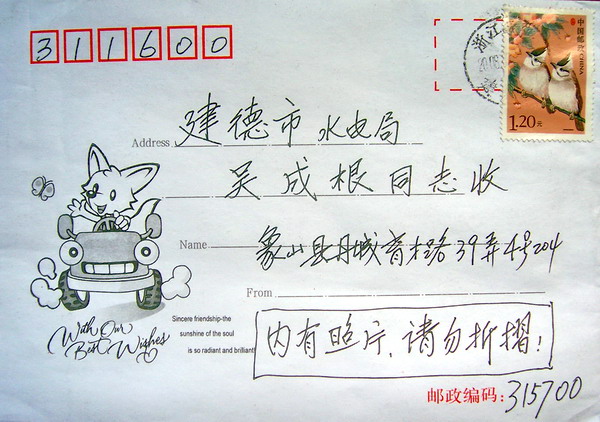 311600
浙江
中国邮政 CHINA
1.20元
Address 建德市水电局
吴成根同志收
Name 象山县丹城育才路39弄4号204
From
With Our
Best Wishes
Sincere friendship-the
sunshine of the soul
is so radiant and brilliant
内有照片,请勿折摺!
邮政编码:315700